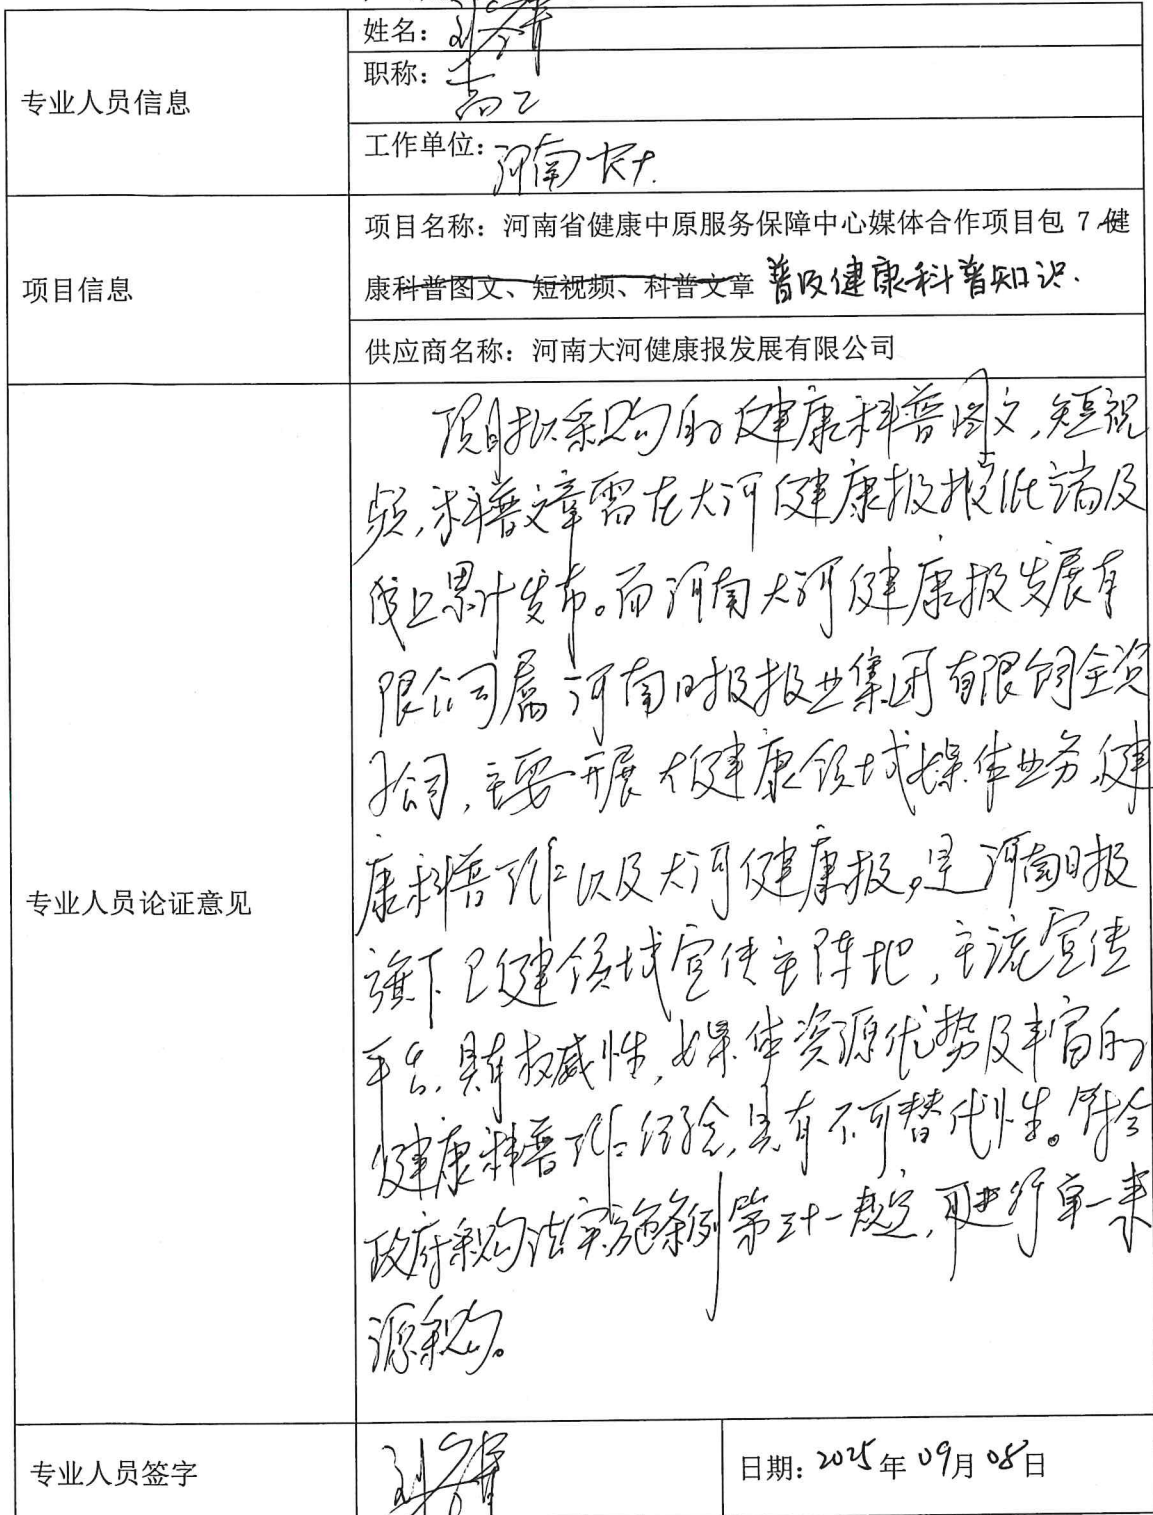 姓名：刘
职称：高工
专业人员信息
工作单位：河南
项目名称：河南省健康中原服务保障中心媒体合作项目包 7 健
康科普图文、短视频、科普文章 普及健康科普知识.
项目信息
供应商名称：河南大河健康报发展有限公司
项目拟采购的健康科普图文,短视
频,科普文章需在大河健康报报纸端及
线上累计发布。而河南大河健康报发展有
限公司属河南日报报业集团有限公司全资
子公司,主要开展大健康领域媒体业务,健
康科普工作以及大河健康报。是河南日报
旗下卫健领域宣传主阵地,主流宣传
平台.具有权威性,媒体资源优势及丰富的
健康科普工作经验,具有不可替代性。符合
专业人员论证意见
政府采购法实施条例第三十一规定,可进行单一来
源采购。
专业人员签字 刘 日期：2025年09月08日